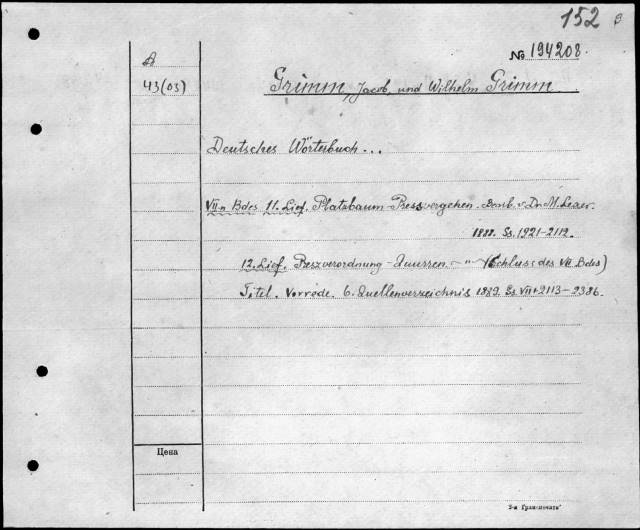 152
№ 194208.
43(03)
Grimm, Jacob, und Wilhelm Grimm.
Deutsches Wörterbuch...
VII-n Bdes 11. Lief. Platzbaum-Pressvergehen. Bearb. v. Dr. M. Lexer.
1888. Ss. 1921-2112.
12. Lief. Preszverordnung-Quurren. - " - (Schluss des VII Bdes)
Titel. Vorrede. 6. Quellenverzeichnis 1889. Ss. VII+2113-2386.
Цена